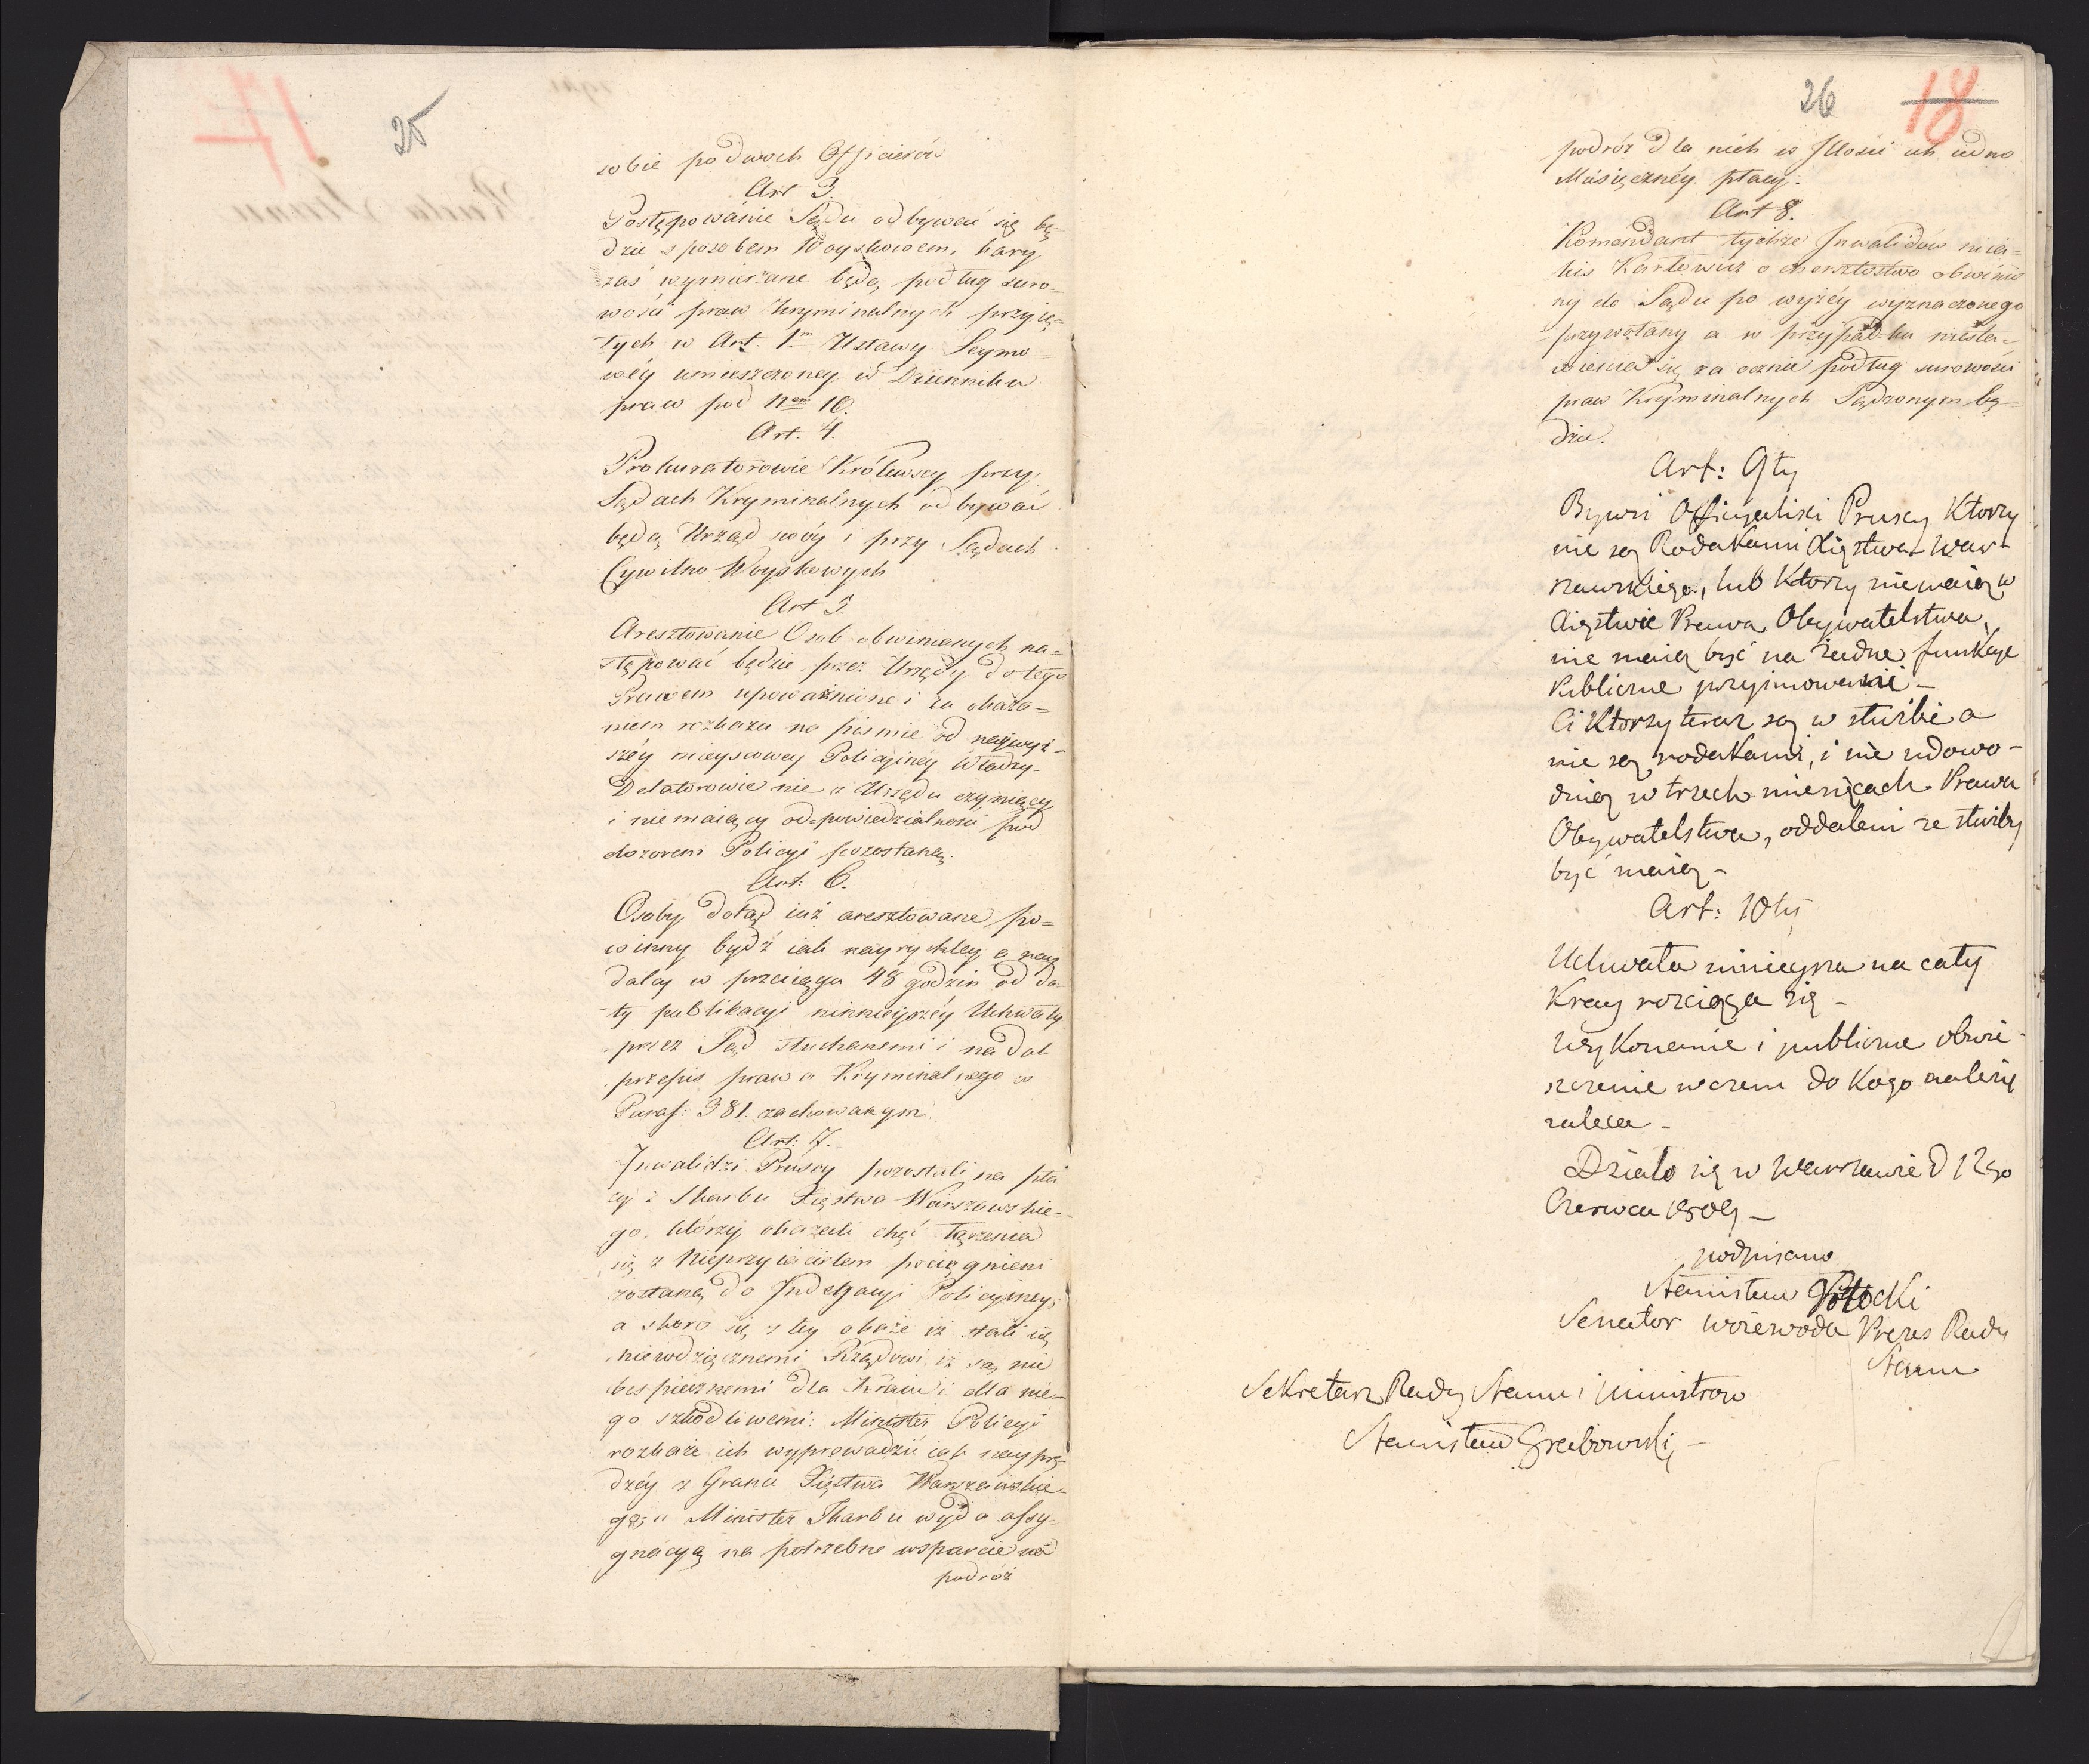 25
sobie po dwoch Officierów
Art 3.
Postępowanie Sądu odbywać się bę-
dzie sposobem Woyskowem, kary
zaś wymierzane będą podług suro-
wości praw kryminalnych przyię-
tych w Art. 1m Ustawy Seymo-
wéy umieszczoney w Dzienniku
praw pod Nem 10.
Art. 4.
Prokuratorowie Królewscy przy
Sądach Kryminalnych odbywać
będą Urząd swóy i przy Sądach
Cywilno Woyskowych
Art 5.
Aresztowanie Osob obwinianych na-
stępować będzie przez Urzędy do tego
Prawem upoważnione i za okaza-
niem rozkazu na pismie od naywyż-
széy mieyscowey Policyinéy Władzy.
Delatorowie nie z Urzędu czyniący
i nie maiący odpowiedzialności pod
dozorem Policyi pozostaną.
Art: 6.
Osoby dotąd iuż aresztowane po-
winny bydź iak nayrychley a nay
daley w przeciągu 48 godzin od da-
ty publikacyi ninnieyszéy Uchwały
przez Sąd słuchanemi i nadal
przepis prawa Kryminalnego w
Paraf: 381. zachowanym
Art: 7.
Inwalidzi Pruscy pozostali na pła
cy z Skarbu Xięstwa Warszawskie-
go, którzy okazali chęć łączenia
się z Nieprzyiacielem pociągnieni
zostaną do Indagacyi Policyiney,
a skoro się z tey okaże iż stali się
niewdzięcznemi Rządowi iż są nie
bespiecznemi dla Kraiu i dla nie-
go szkodliwemi: Minister Policyi
rozkaże ich wyprowadzić iak nayprę-
dzéy z Granic Xięstwa Warszawskie-
go, a Minister Skarbu wyda assy-
gnacyą na potrzebne wsparcie na
podróż
26 18
podróż dla nich w Ilości ich iedno
Miesięcznéy płacy.
Art 8.
Komendant tychże Inwalidów nieia-
kis o obwinio
ny do Sądu po wyżéy wyznaczonego
przywołany a w przypadku niesta-
wienia się za ocznie podług surowości
praw Kryminalnych Sądzonym bę-
dzie.
Art: 9ty
Bywsi Officyaliści Pruscy Ktorzy
nie są Rodakami Xięstwa War-
szawskiego, lub Ktorzy nie maią w
Xięstwie Prawa Obywatelstwa,
nie maią być na żadne funkcye
Publiczne przyimowani -
Ci Ktorzy teraz są w służbie a
nie są rodakami, i nie udowo-
dnią w trzech miesiącach Prawa
Obywatelstwa, oddaleni ze służby
być maią -
Art: 10ty
Uchwała ninieysza na cały
Kray rozciąga się -
Wykonanie i publiczne obwie-
szczenie w czem do Kogo należy
zaleca -
Działo się w Warszawie d 12go
Czerwca 1809 -
podpisano
Stanisław Potocki
Senator Woiewoda Prezes Rady
Stanu
Sekretarz Rady Stanu i Ministrow
Stanisław Grabowski -